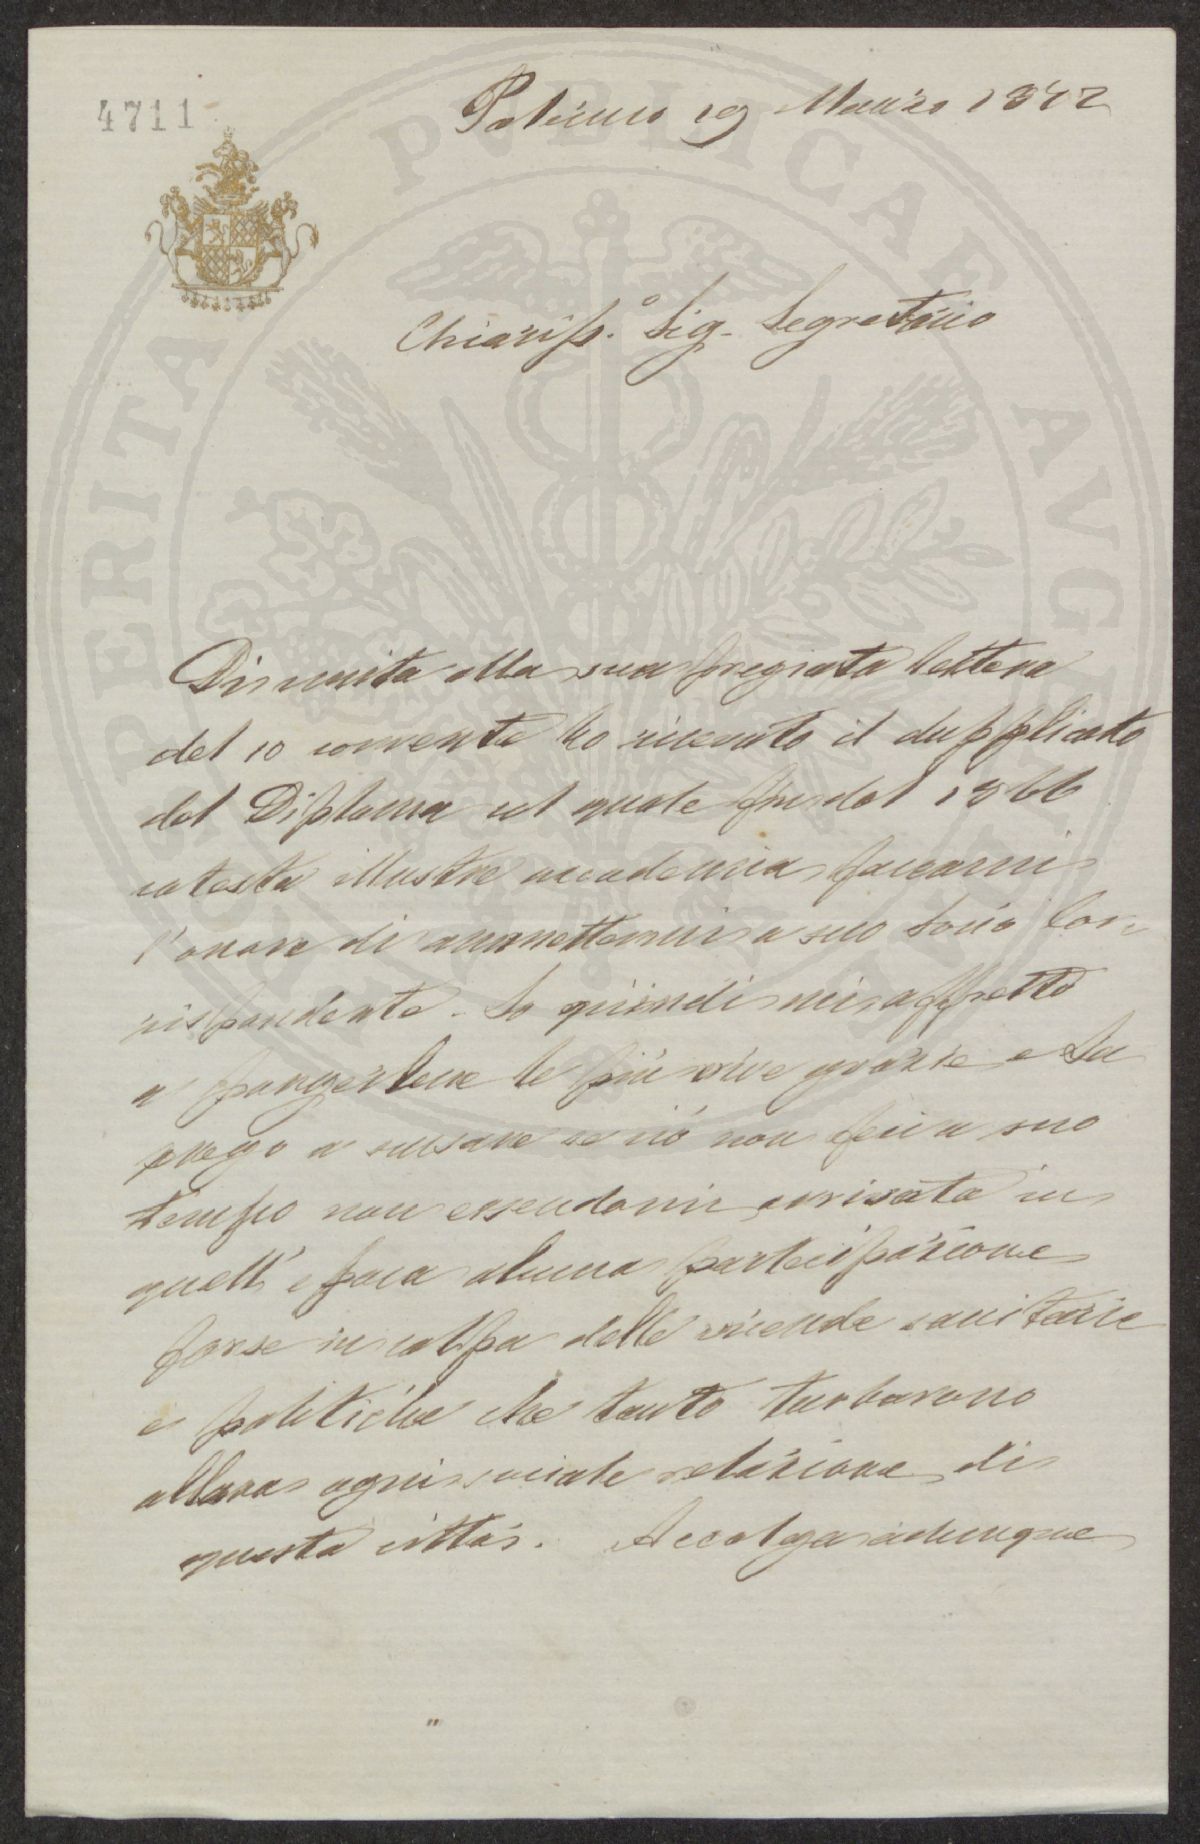 4711
Palermo 19 Marzo 1872
Chiariss.o Sig. Segretario
Di unita alla sua pregiata lettera
del 10 corrente ho ricevuto il dupplicato
del Diploma col quale fin dal 1866
cotesta illustre accademia faceami
l'onore di ammettermi a suo Socio Cor-
rispondente. Io quindi mi affretto
a porgerlene le più vive grazie e La
prego a scusare se ciò non feci a suo
tempo non essendomi arrivata in
quell'epoca alcuna partecipazione
forse in colpa delle vicende sanitarie
e politiche che tanto turbarono
allora ogni sociale relazione di
questa città. Accolga adunque
PUBLICAE
AUGENDAE
PROSPERITATI